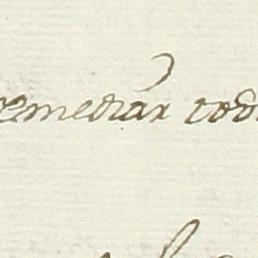 remediar tod